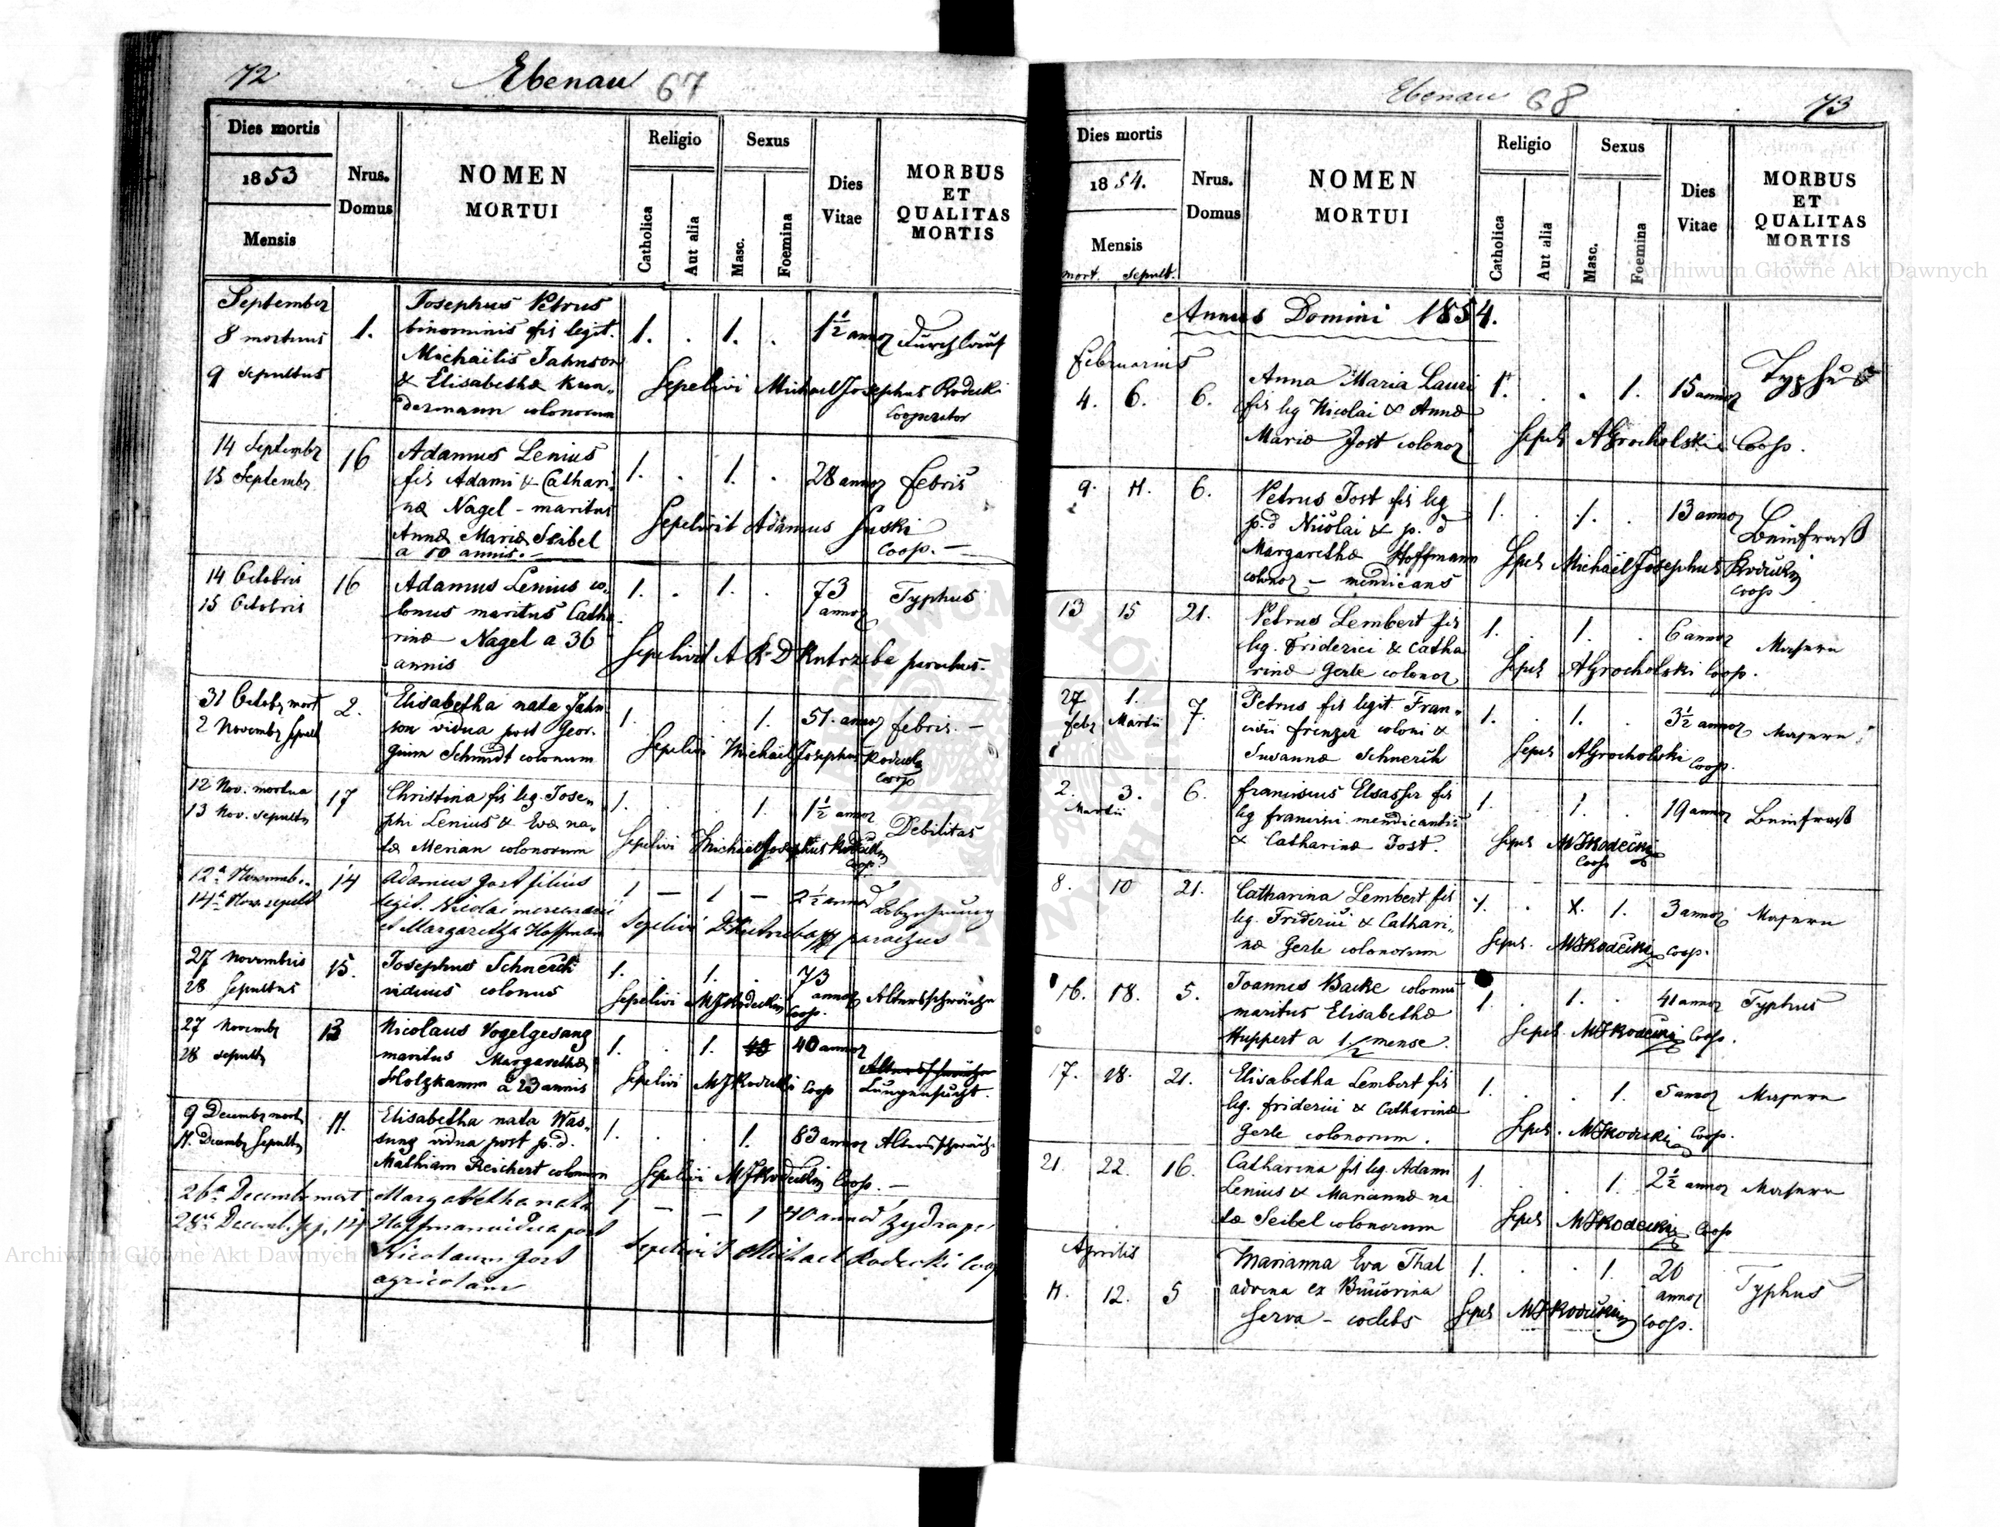 72 Ebenau 67
Dies mortis
1853
Mensis
Nrus. Domus
NOMEN
MORTUI
Religio
Catholica
Aut alia
Sexus
Masc.
Foemina
Dies
Vitae
MORBUS
ET
QUALITAS
MORTIS
September
8 mortuus
9 sepultus
1.
Josephus Petrus
binominis fis legit.
Michäelis Jahnson
& Elisabethæ Kun-
dermann colonorum
1. . 1. . 1½ annor Durchlauf
Sepelivi Michael Josephus Rodecki
Cooperator
14 Septembr
15 Septembr
16
Adamus Lenius
fis Adami & Cathari-
næ Nagel - maritus
Annæ Mariæ Seibel
a 10 annis.-
1. . 1. . 28 annor febris
Sepelivit Adamus Suski
Coop. -
14 Octobris
15 Octobris
16
Adamus Lenius co-
lonus maritus Catha
rinæ Nagel a 36
annis
1. . 1. . 73 annor Typhus
Sepelivit A R D Kutrzeba parochus.
31 Octobr mort
2 Novembr sepult
2.
Elisabetha nata Jahn
son vidua post Geor-
gium Schmidt colonum
1. . . 1. 51. annor febris. -
Sepelivi Michäel Josephus Rodecki
Coop
12 Nov. mortua
13 Nov. sepulta
17
Christina fis leg. Jose-
phi Lenius & Evæ na-
tæ Merian colonorum
1. . . 1. 1½ annor Debilitas
Sepelivi Michäel Josephus Rodecki
Coop.
12ª Novemb.
14ª Nov. sepult
14
Adamus Jost filius
legit. Nicolai mercenarii
et Margaretha Hoffman
1 — 1 — 2½ annor Abzehrung
Sepelivi D Kutrzeba parochus
27 Novembris
28 Sepultus
15.
Josephus Schnerch
viduus colonus
1. . 1. . 73 annor Altersschwäche
Sepelivi MJRodecki Coop.
27 Novembr
28 sepultus
13
Nicolaus Vogelgesang
maritus Margarethæ
Holzkamm a 23 annis
1. . 1. 40 40 annor Altersschwäche
Lungensucht.
Sepelivi MJRodecki Coop
9 Decembr mort
11. Decembr Sepulta
11.
Elisabetha nata Was-
sung vidua post p.d.
Mathiam Reichert colonum
1. . . 1. 83 annor Altersschwäch.
Sepelivi MJRodecki Coop. -
26ª Decemb mort
28ª Decemb. sep. 14
Margabetha nata
Hoffman vidua post
Nicolaum Jost
agricolam
1 — — 1 40 annor
Sepelivit Michael Rodecki Coop
Ebenau 68 73
Dies mortis
1854.
Mensis
mort. sepult.
Nrus. Domus
NOMEN
MORTUI
Religio
Catholica
Aut alia
Sexus
Masc.
Foemina
Dies
Vitae
MORBUS
ET
QUALITAS
MORTIS
Annus Domini 1854.
Februarius
4. 6. 6.
Anna Maria Lauri
fis leg Nicolai & Annæ
Mariæ Jost colonor
1. . . 1. 15 annor Typhus
Sepel AGrocholski Coop.
9. 11. 6.
Petrus Jost fis leg
p.d Nicolai & p. d
Margarethæ Hoffmann
colonor - mendicans
1. . 1. . 13 annor Beinfraß
Sepel Michäel Josephus Rodecki
Coop
13 15 21.
Petrus Lembert fis
leg. Friderici & Catha
rinæ Gerle colonor
1. . 1. . 6 annor Masern
Sepel AGrocholski Coop.
27 febr 1. Martii 7.
Petrus fis legit Fran-
cisci Frenzer coloni &
Susannæ Schnerch
1. . 1. . 3½ annor Masern
Sepel AGrocholski Coop.
2. 3. Martii 6.
Franciscus Elsasser fis
leg Francisci mendicantis
& Catharinæ Jost.
1. . 1. . 19 annor Beinfraß
Sepel MJRodecki
Coop
8. 10 21.
Catharina Lembert fis
leg. Friderici & Cathari-
næ Gerle colonorum
1. . X. 1. 3 annor Masern
Sepel. MJRodecki Coop.
16. 18. 5.
Joannes Backe colonus
maritus Elisabethæ
Huppert a 1/2 mense.
1. . 1. . 41 annor Typhus
Sepel. MJRodecki Coop.
17. 18. 21.
Elisabetha Lembert fis
leg. Friderici & Catharinæ
Gerle colonorum.
1. . . 1. 5 annor Masern
Sepel. MJRodecki Coop.
21. 22. 16.
Catharina fis leg. Adami
Lenius & Mariannæ na
tæ Seibel colonorum
1. . . 1. 2½ annor Masern
Sepel MJRodecki Coop
Aprilis
11. 12. 5
Marianna Eva Thal
advena ex
Serva - cælebs
1. . . 1. 20 annor Typhus
Sepel MJRodecki Coop.
Archiwum Główne Akt Dawnych
Archiwum Główne Akt Dawnych